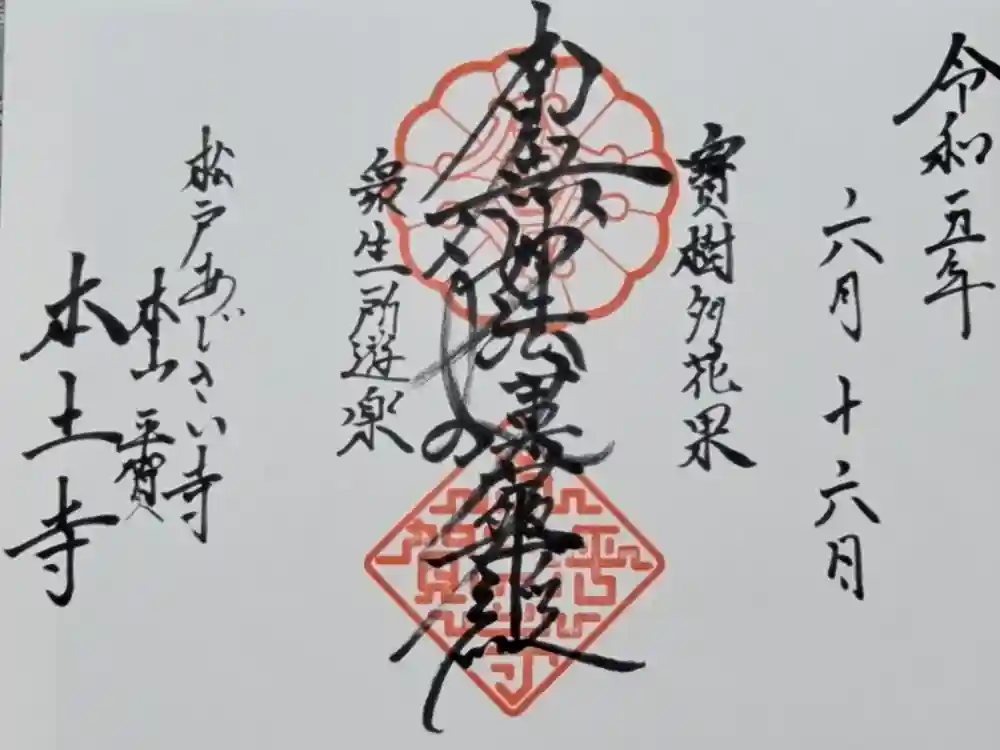 令和五年
六月十六月
寶樹多花果
南無妙法蓮華経
衆生所遊楽
松戸あじさい寺
本山 平賀
本土寺